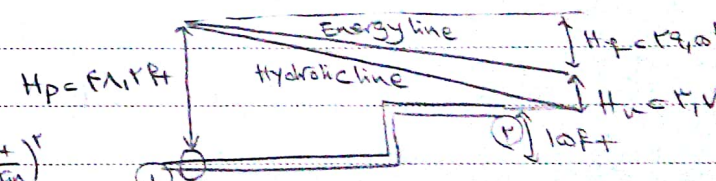 Energy line
H_f = ۲۹,۵'
Hp = ۴۸,۲ ft
Hydrolic line
H_v = ۳,۷
۲
۱۵ft
۱